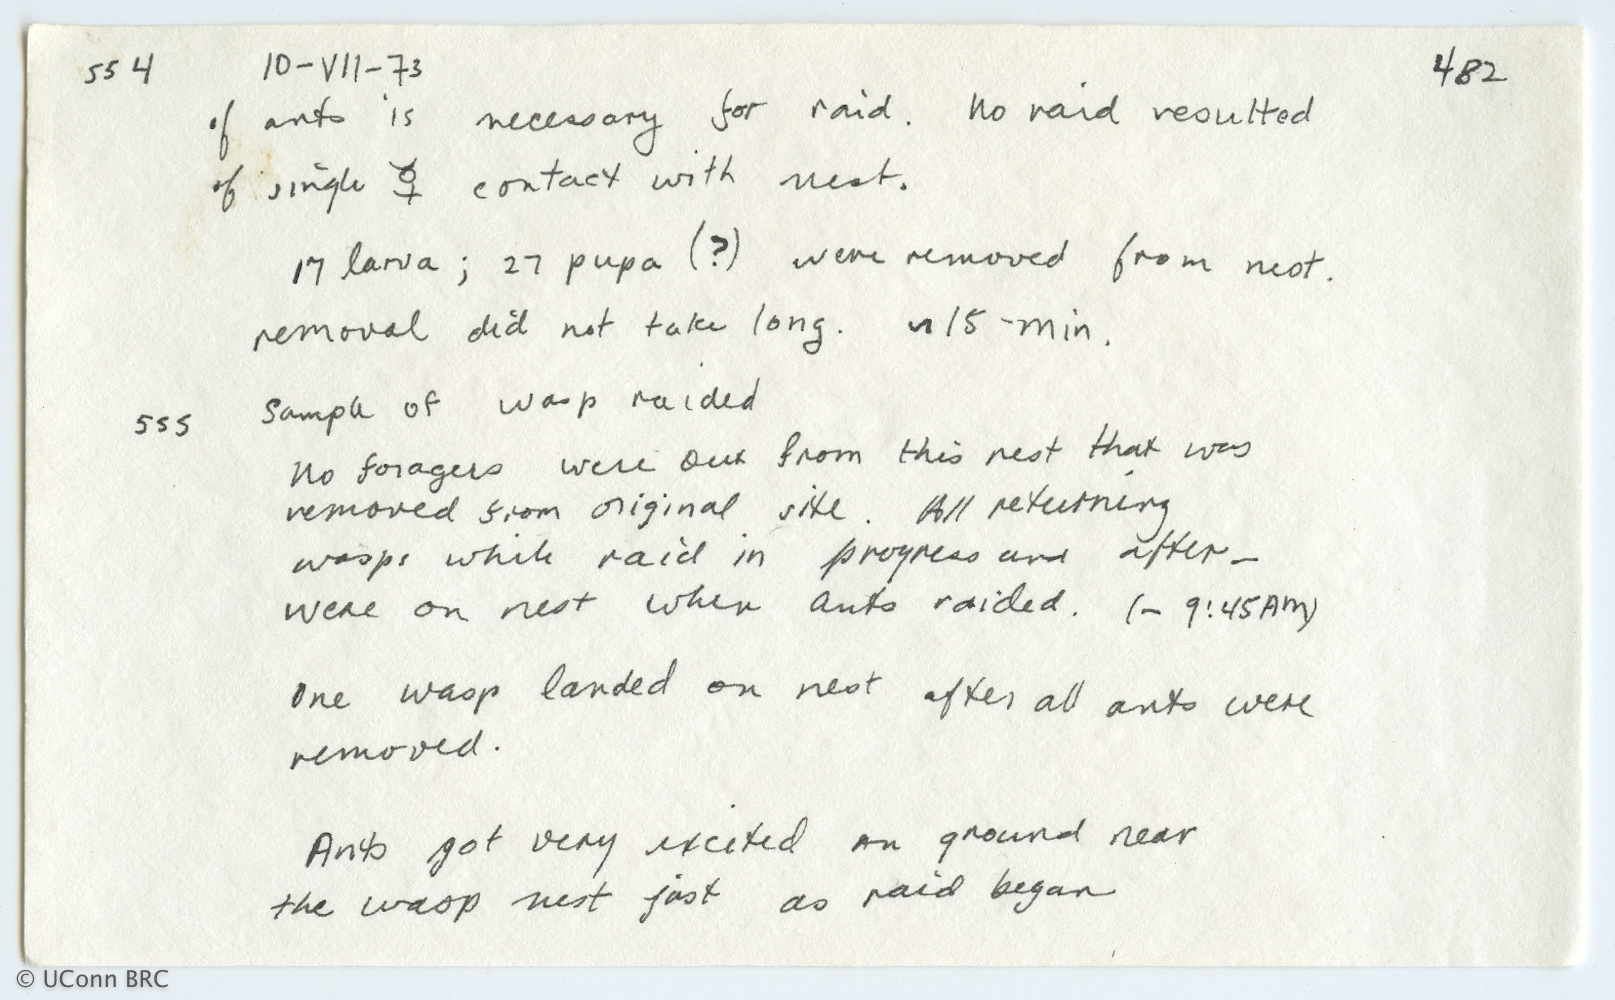 554 10-VII-73 482
of ants is necessary for raid. No raid resulted
of single ☿ contact with nest.
17 larva; 27 pupa (?) were removed from nest.
removal did not take long. ~15-min.
555 Sample of wasp raided
No foragers were out from this nest that was
removed from original site. All returning
wasps while raid in progress and after-
were on nest when ants raided. (- 9:45AM)
One wasp landed on nest after all ants were
removed.
Ants got very excited on ground near
the wasp nest just as raid began
© UConn BRC